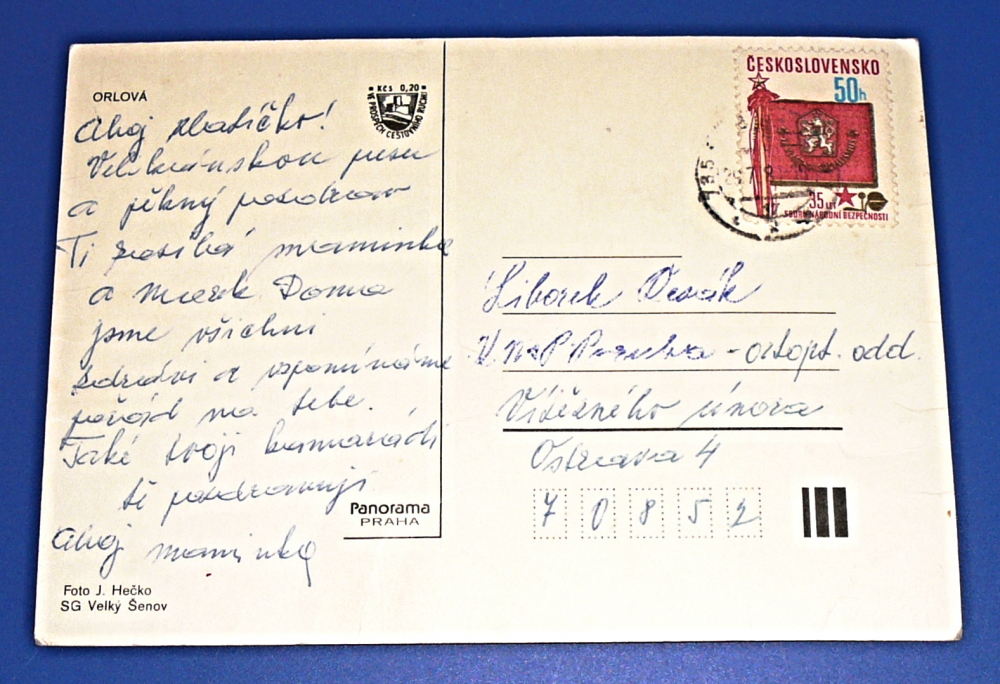 ORLOVÁ
Kčs 0,20
VE PROSPĚCH CESTOVNÍHO RUCHU
Ahoj zlatíčko!
Velikánskou pusu
a pěkný pozdrav
Ti posílá maminka
a Marek Doma
jsme všichni
zdraví a vzpomínáme
pořád na tebe.
Také tvoji kamarádi
tě pozdravují
Ahoj maminka
Panorama
PRAHA
Foto J. Hečko
SG Velký Šenov
ČESKOSLOVENSKO
50h
35 LET
SBORU NÁRODNÍ BEZPEČNOSTI
735
Liborek
ortopt. odd.
Vítězného února
Ostrava 4
7 0 8 5 2